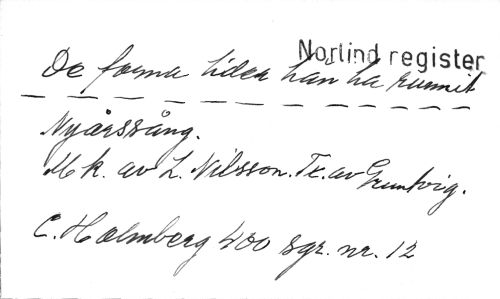 Norlind register
De forna tider han ha runnit
Nyårssång.
Mk. av L. Nilsson. Tx. av Gruntvig.
C. Holmberg 400 sgr. nr. 12